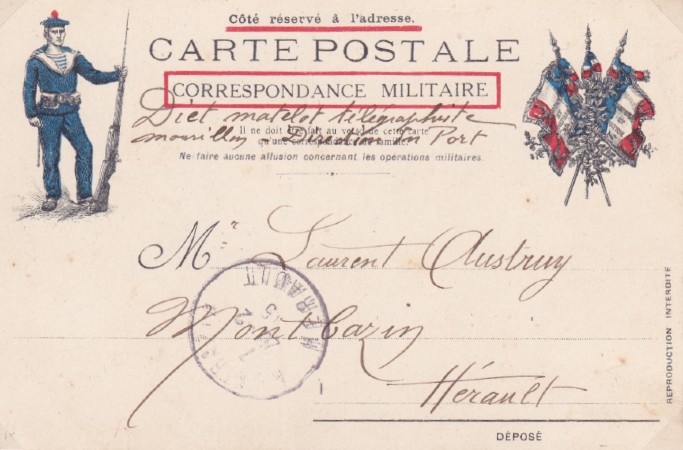 Côté réservé à l'adresse.
CARTE POSTALE
CORRESPONDANCE MILITAIRE
Diet matelot télégraphiste
mourillon Direction du Port
Il ne doit être fait au verso de cette carte
qu'une correspondance de famille.
Ne faire aucune allusion concernant les opérations militaires.
Mr Laurent Austruy
Montbazin
Hérault
HERAULT
REPRODUCTION INTERDITE
DÉPOSÉ